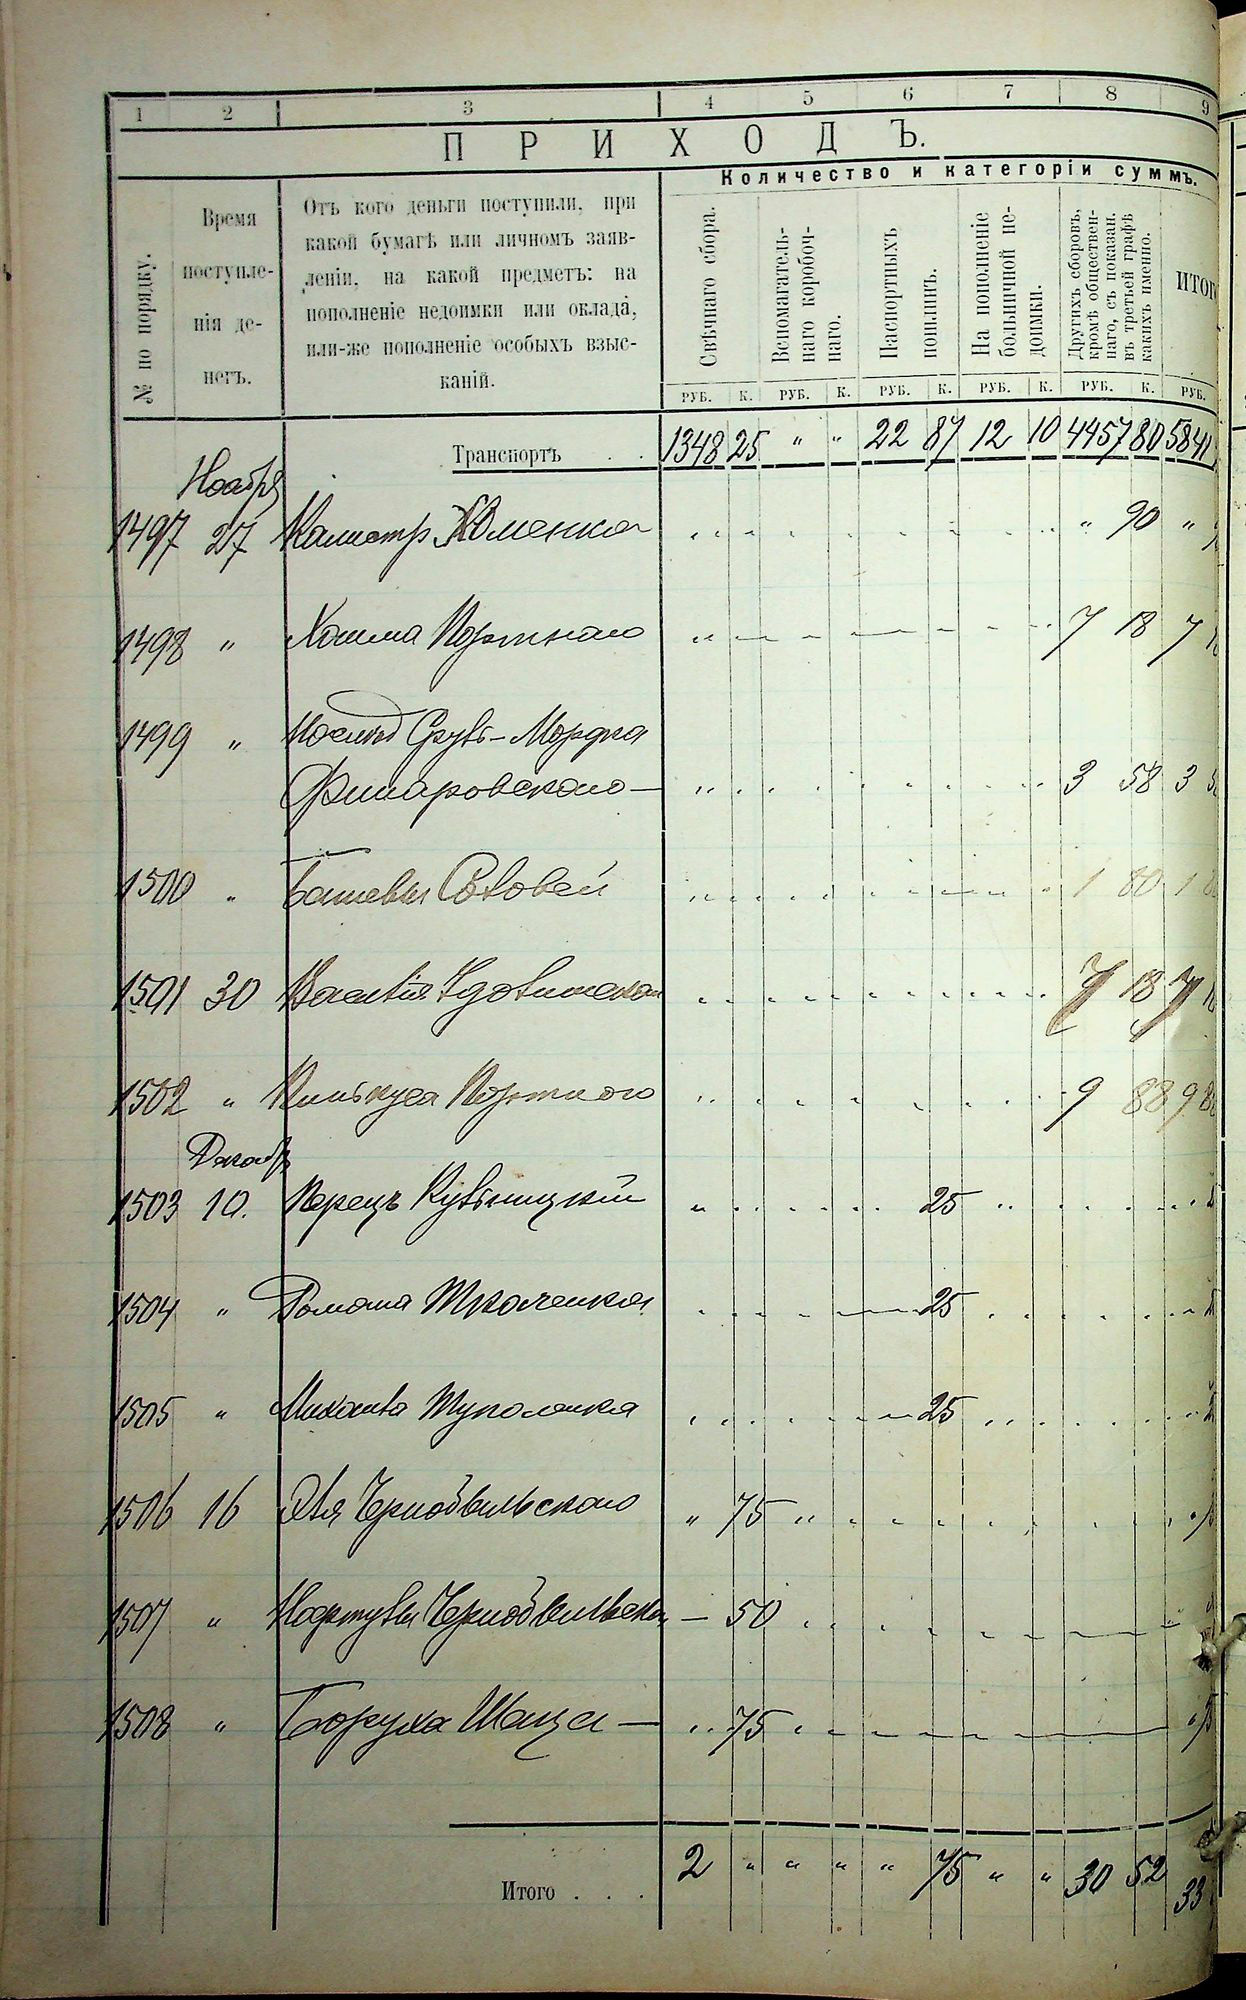 1 2 3 4 5 6 7 8 9
ПРИХОДЪ.
Количество и категоріи суммъ.
№ по порядку.
Время поступленія денегъ.
Отъ кого деньги поступили, при
какой бумагѣ или личномъ заяв-
леніи, на какой предметъ: на
пополненіе недоимки или оклада,
или-же пополненіе особыхъ взыс-
каній.
Свѣчнаго сбора.
Вспомагатель-
наго коробоч-
наго.
Паспортныхъ
пошлинъ.
На пополненіе
больничной не-
доимки.
Другихъ сборовъ,
кромѣ обществен-
наго, съ показан.
въ третьей графѣ
какихъ именно.
ИТОГО
РУБ. К. РУБ. К. РУБ. К. РУБ. К. РУБ. К. РУБ.
Транспортъ . . 1348 25 " " 22 87 12 10 4457 80 5841
Ноября
1497 27 Калистр Хоменко " 90 "
1498 " Хаима Портного 7 18 7
1499 " Мордка
3 58 3
1500 " Башевы 1 80 1
1501 30 7 18 7
1502 " Пинькуса Портного 9 88 9
Декабр
1503 10. Перецъ 25
1504 " Романа Ткаченка 25
1505 " Михаила 25
1506 16 Эля Чернобыльского " 75
1507 " Чернобыльской — 50
1508 " Боруха Шаца — 75
Итого . . . 2 " " " " 75 " " 30 52 33